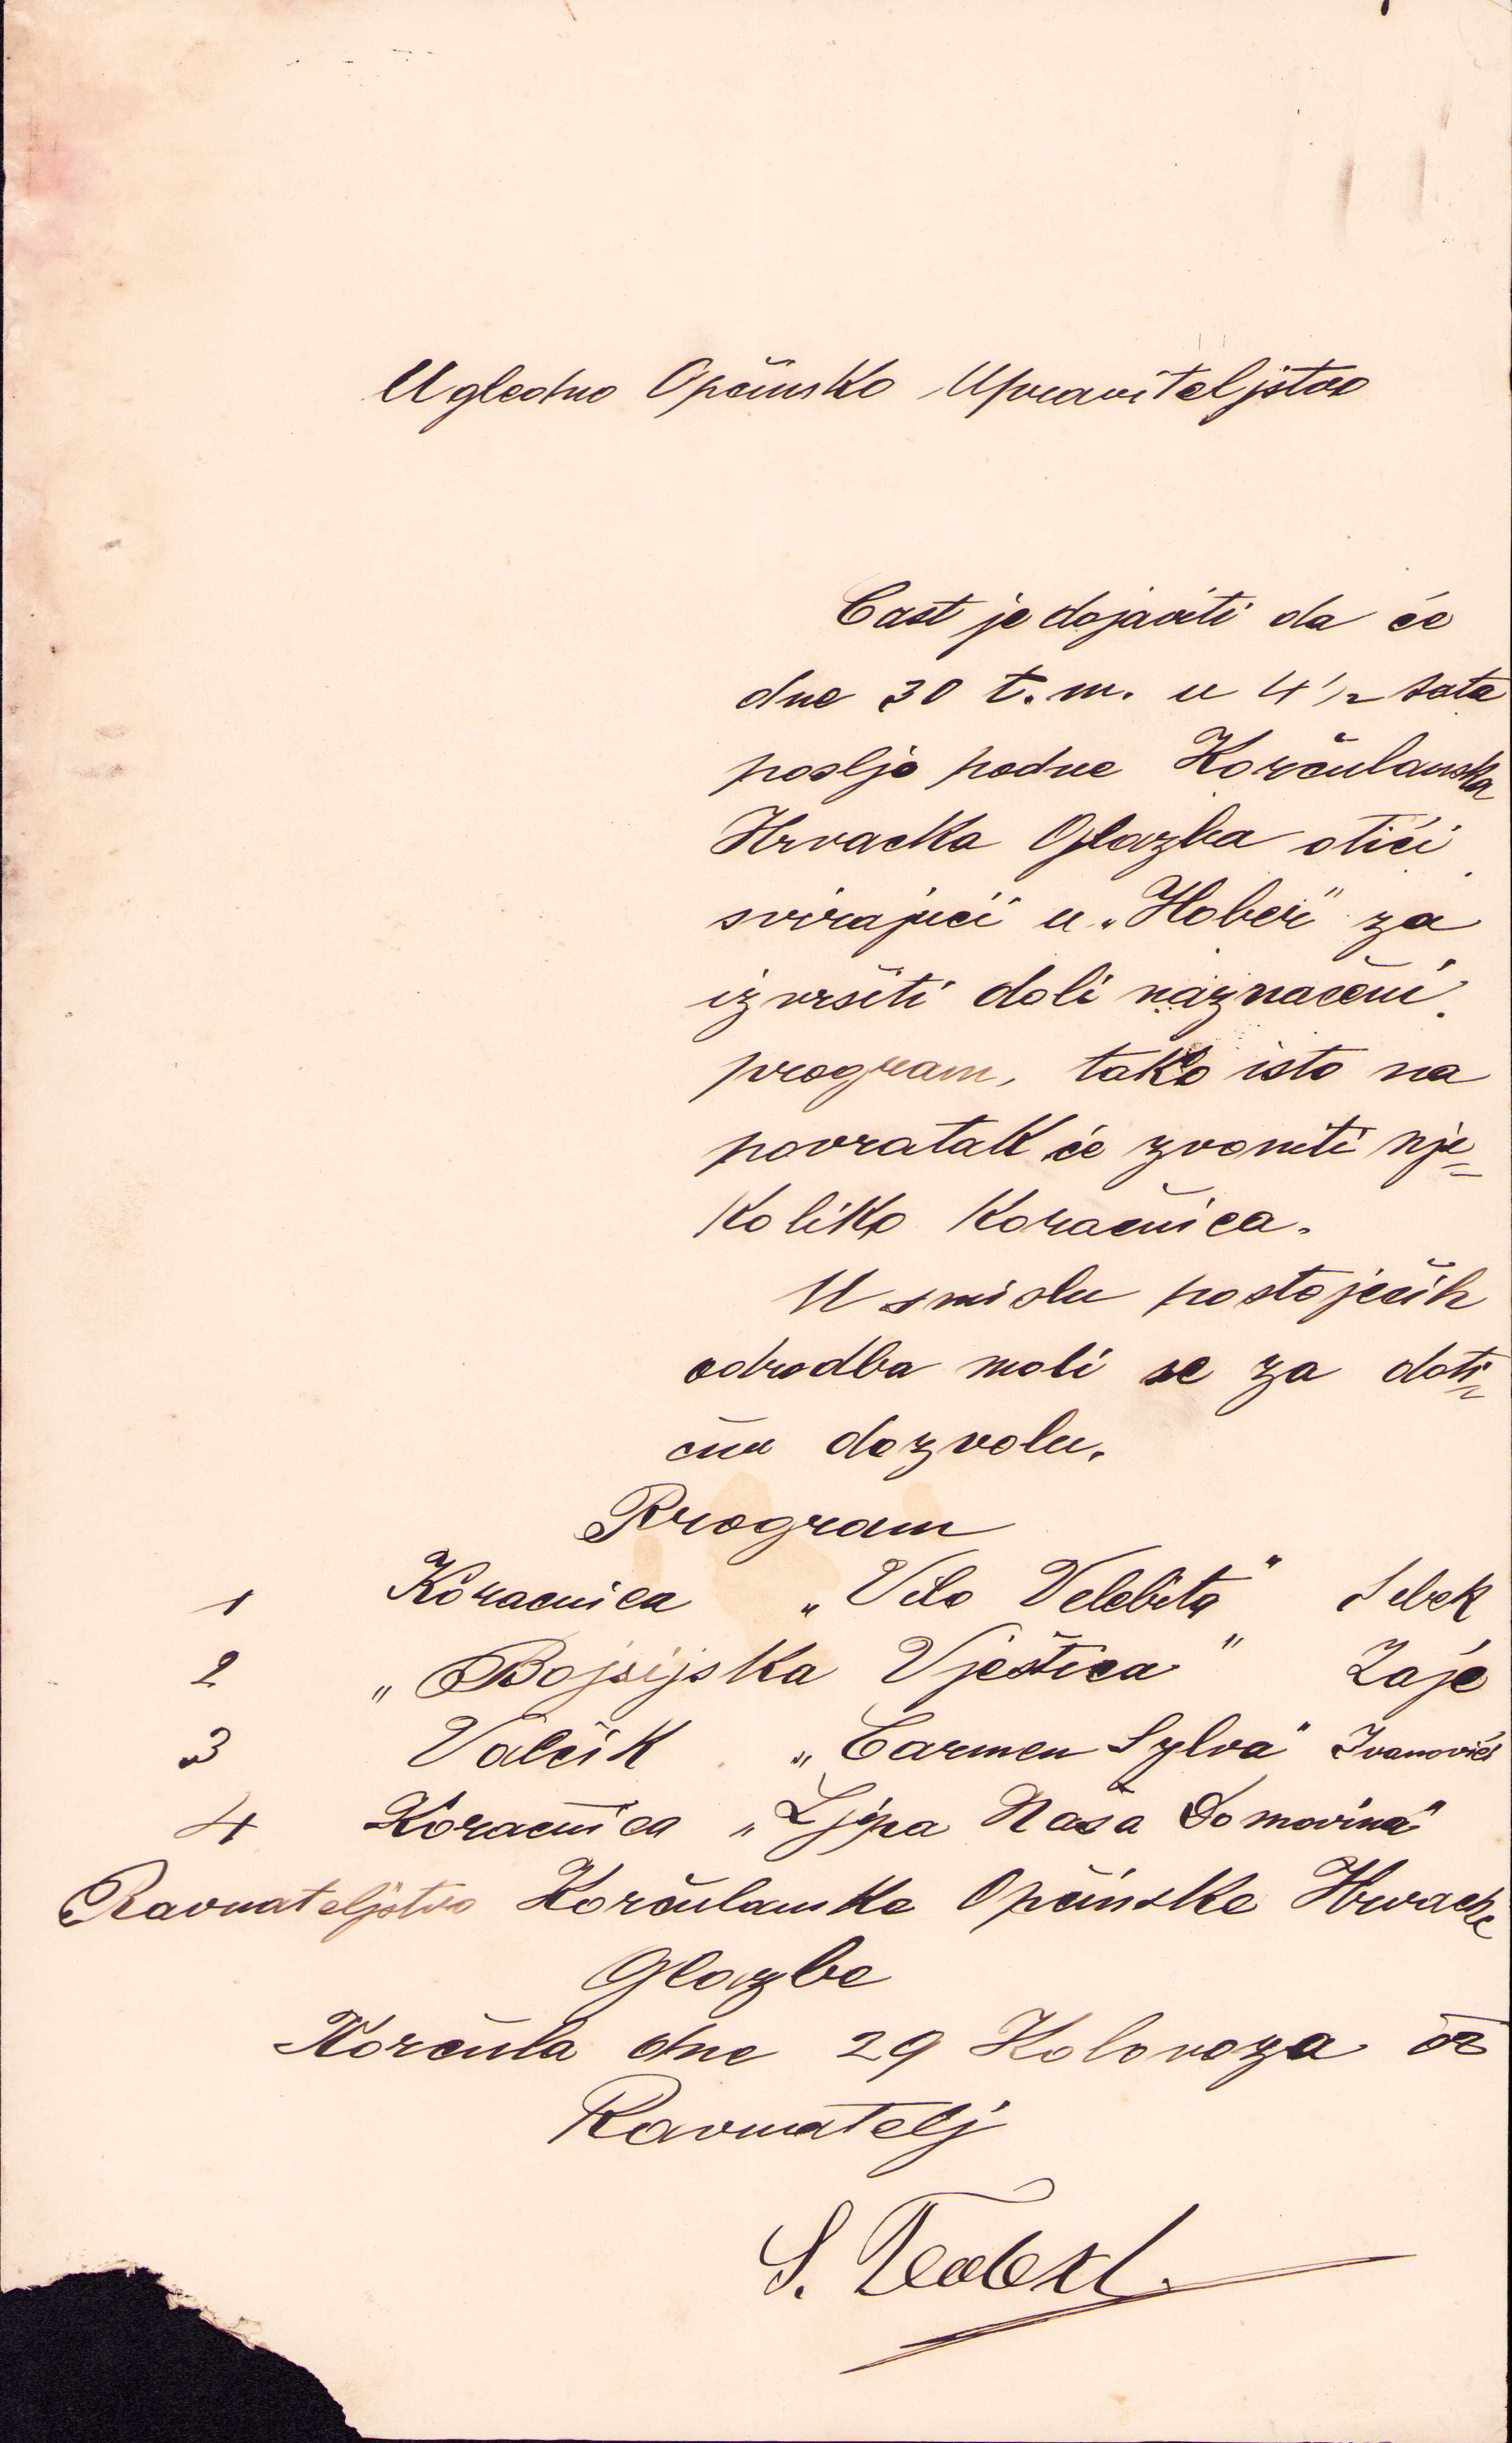 Ugledno Općinsko Upraviteljstvo
Čast je dojaviti da će
dne 30 t.m. u 4 1/2 sata
poslje podne Korčulanska
Hrvacka Glazba otići
svirajući u „Hober" za
izvršiti doli naznačeni
program, tako isto na
povratak će zvoniti nje=
koliko Koračnica.
U smislu postojećih
odredba moli se za doti=
čnu dozvolu.
Program
1 Koračnica „Vilo Velebita" Sebek
2 „Bojsijska Vještica" Zaje
3 Valčik „Carmen Sylva" Ivanovići
4 Koračnica „Ljipa Naša Domovina"
Ravnateljstvo Korčulanske Općinske Hrvacke
Glazbe
Korčula dne 29 Kolovoza
Ravnatelj
S.